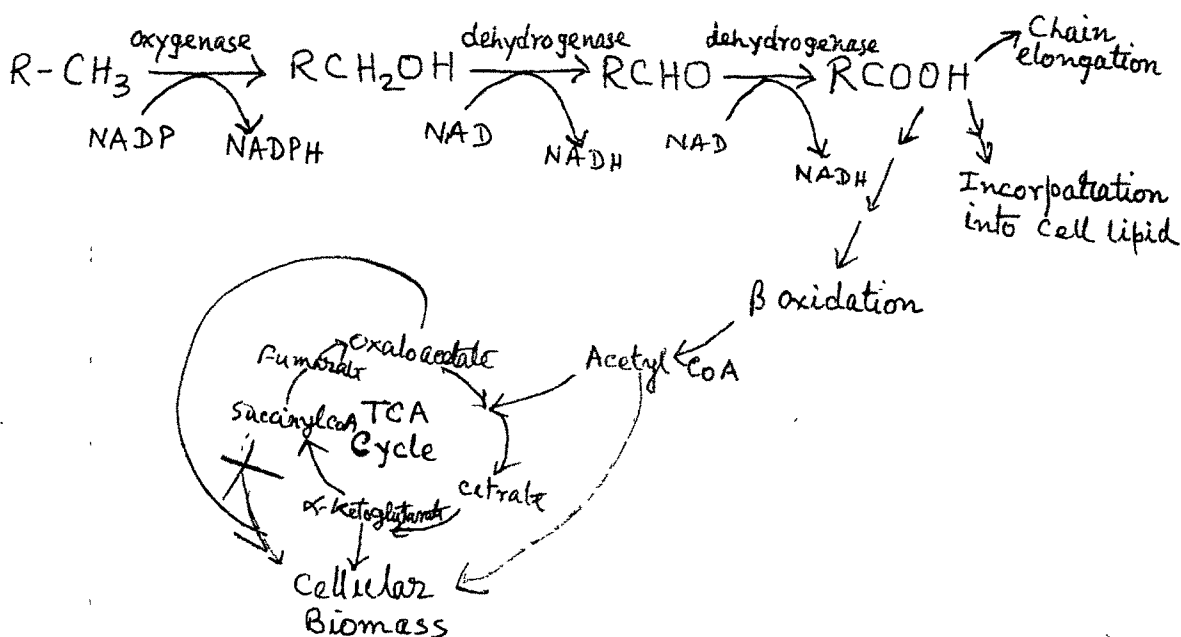 oxygenase dehydrogenase dehydrogenase
R-CH3 RCH2OH RCHO RCOOH
Chain
elongation
NADP NADPH NAD NADH NAD NADH
Incorpatration
into cell lipid
β oxidation
Acetyl CoA
Oxaloacetate
Fumarate
SuccinylCoA
TCA
Cycle
Cetrate
α-Ketoglutarate
Cellular
Biomass